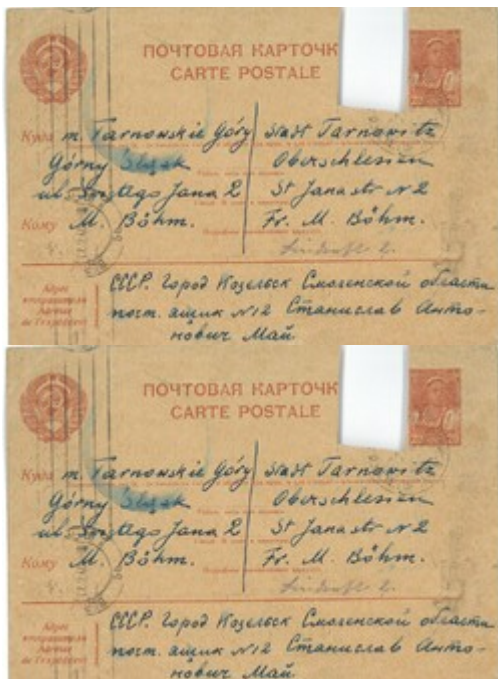 ПОЧТОВАЯ КАРТОЧК
CARTE POSTALE
Куда m. Tarnowskie Góry
Górny Śląsk
ul Świętego Jana 2
Кому M. Böhm.
Stadt Tarnowitz
Oberschlesien
St Janastr N 2
Fr. M. Böhm.
Адрес отправителя
СССР. Город Козельск Смоленской области
почт. ящик N12 Станислав Анто-
нович Май
ПОЧТОВАЯ КАРТОЧК
CARTE POSTALE
Куда m. Tarnowskie Góry
Górny Śląsk
ul Świętego Jana 2
Кому M. Böhm.
Stadt Tarnowitz
Oberschlesien
St Janastr N 2
Fr. M. Böhm.
Адрес отправителя
СССР. Город Козельск Смоленской области
почт. ящик N12 Станислав Анто-
нович Май